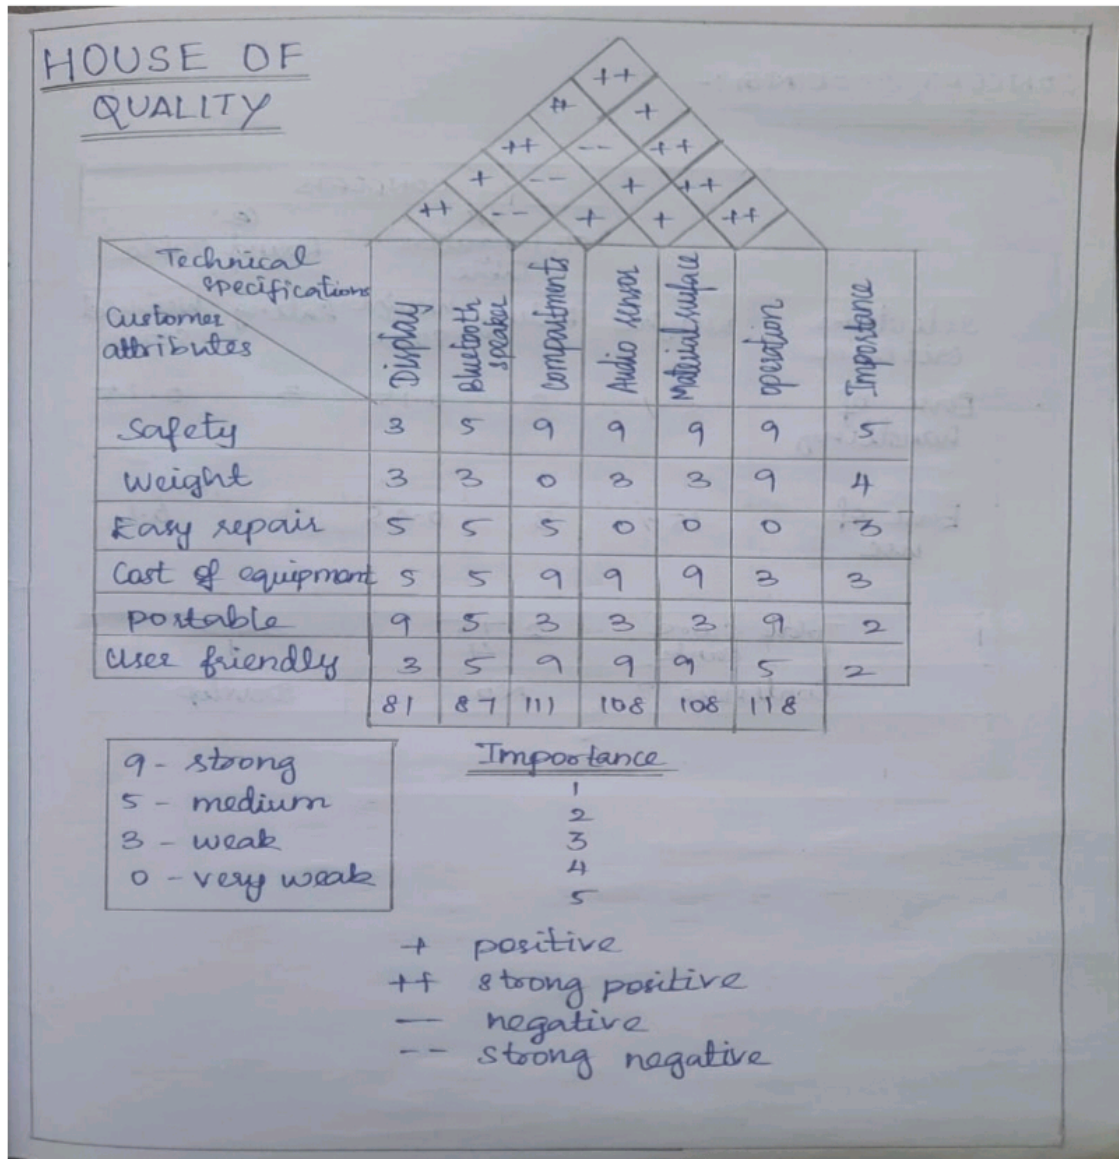 HOUSE OF
QUALITY
++
++ +
++ -- ++
+ -- + ++
++ -- + + ++
Technical
specifications
Customer
attributes
Display
Bluetooth
speaker
compartments
Audio sensor
Material surface
operation
Importance
Safety 3 5 9 9 9 9 5
Weight 3 3 0 3 3 9 4
Easy repair 5 5 5 0 0 0 3
Cost of equipment 5 5 9 9 9 3 3
portable 9 5 3 3 3 9 2
User friendly 3 5 9 9 9 5 2
81 87 111 108 108 118
9 - strong
5 - medium
3 - weak
0 - very weak
Importance
1
2
3
4
5
+ positive
++ strong positive
— negative
-- strong negative